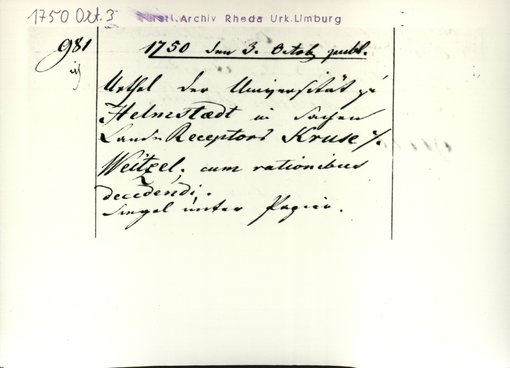 1750 Okt. 3
Fürstl. Archiv Rheda Urk. Limburg
981
1750 den 3. Octob. publ.
Urthel der Universität zu
Helmstædt in Sachen
Lands Receptors Kruse ./.
Weitzel. cum rationibus
decidendi.
Siegel unter Papier.